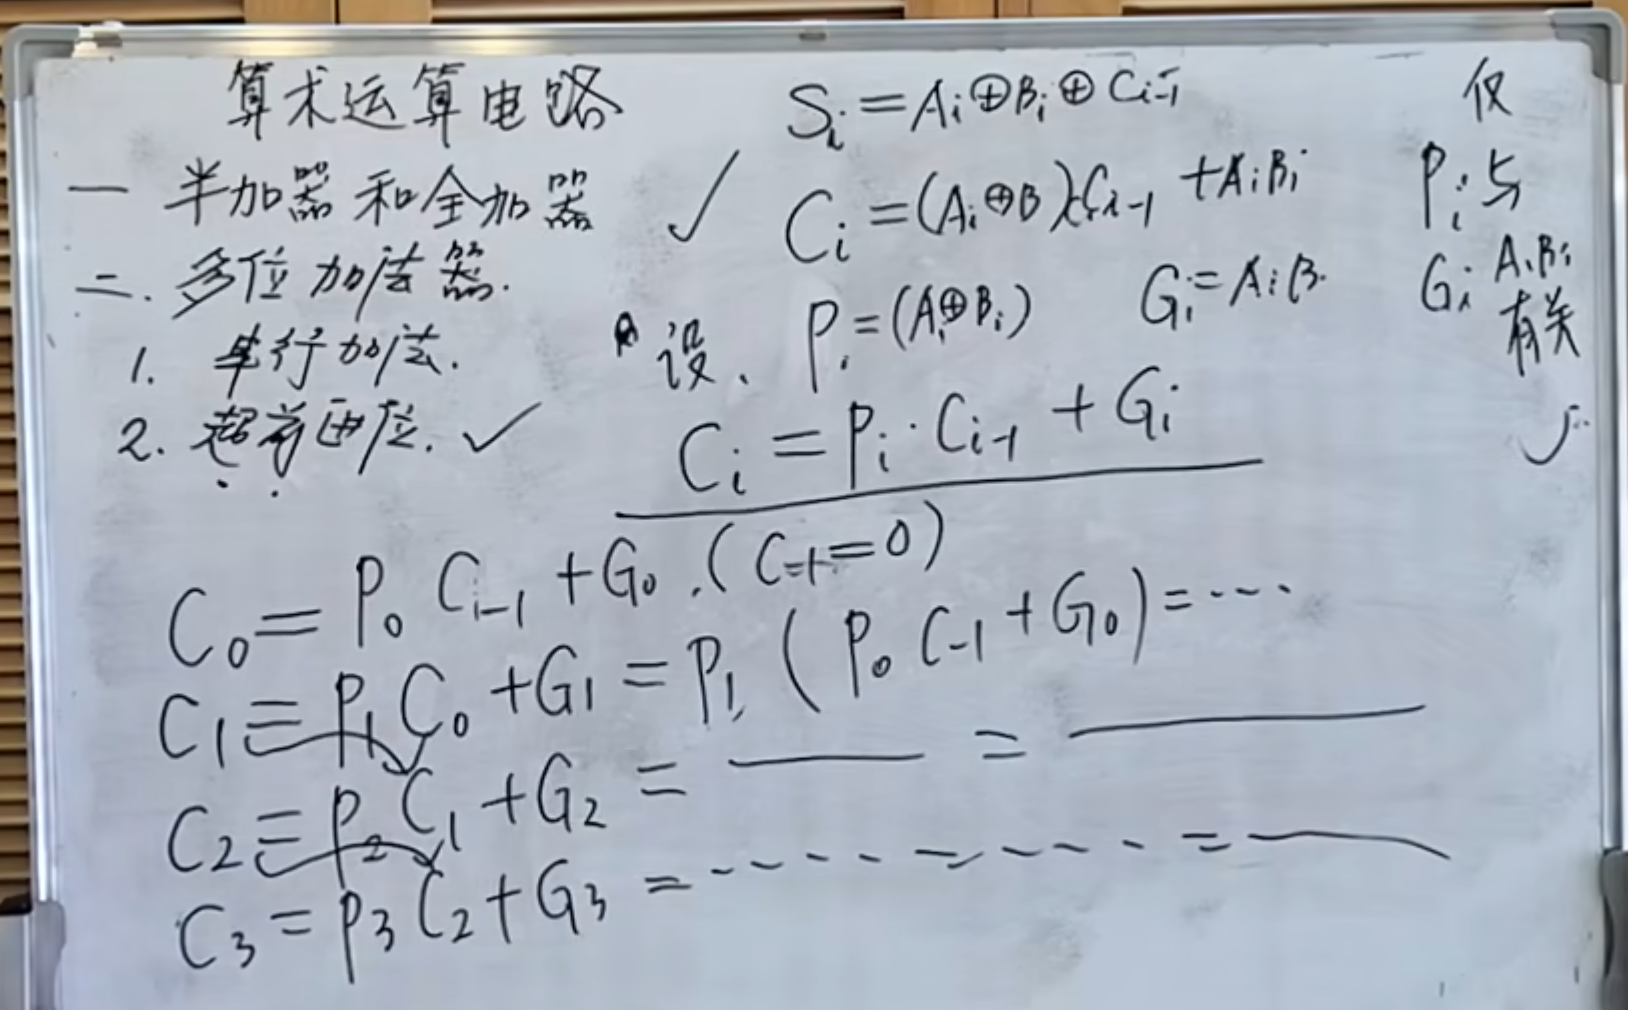 算术运算电路
一 半加器和全加器 ✓
二. 多位加法器.
1. 串行加法.
2. 超前进位. ✓
Si = Ai⊕Bi⊕Ci-1
Ci = (Ai⊕B)Ci-1 + AiBi
设、Pi = (Ai⊕Bi) Gi = AiB
Ci = Pi · Ci-1 + Gi
仅
Pi 与
Gi AiBi
有关
C0 = P0 Ci-1 + G0 . (C-1 = 0)
C1 = P1C0 + G1 = P1 (P0 C-1 + G0) = ···
C2 = P2C1 + G2 = —— = ——
C3 = P3C2 + G3 = ---- = --- = ——